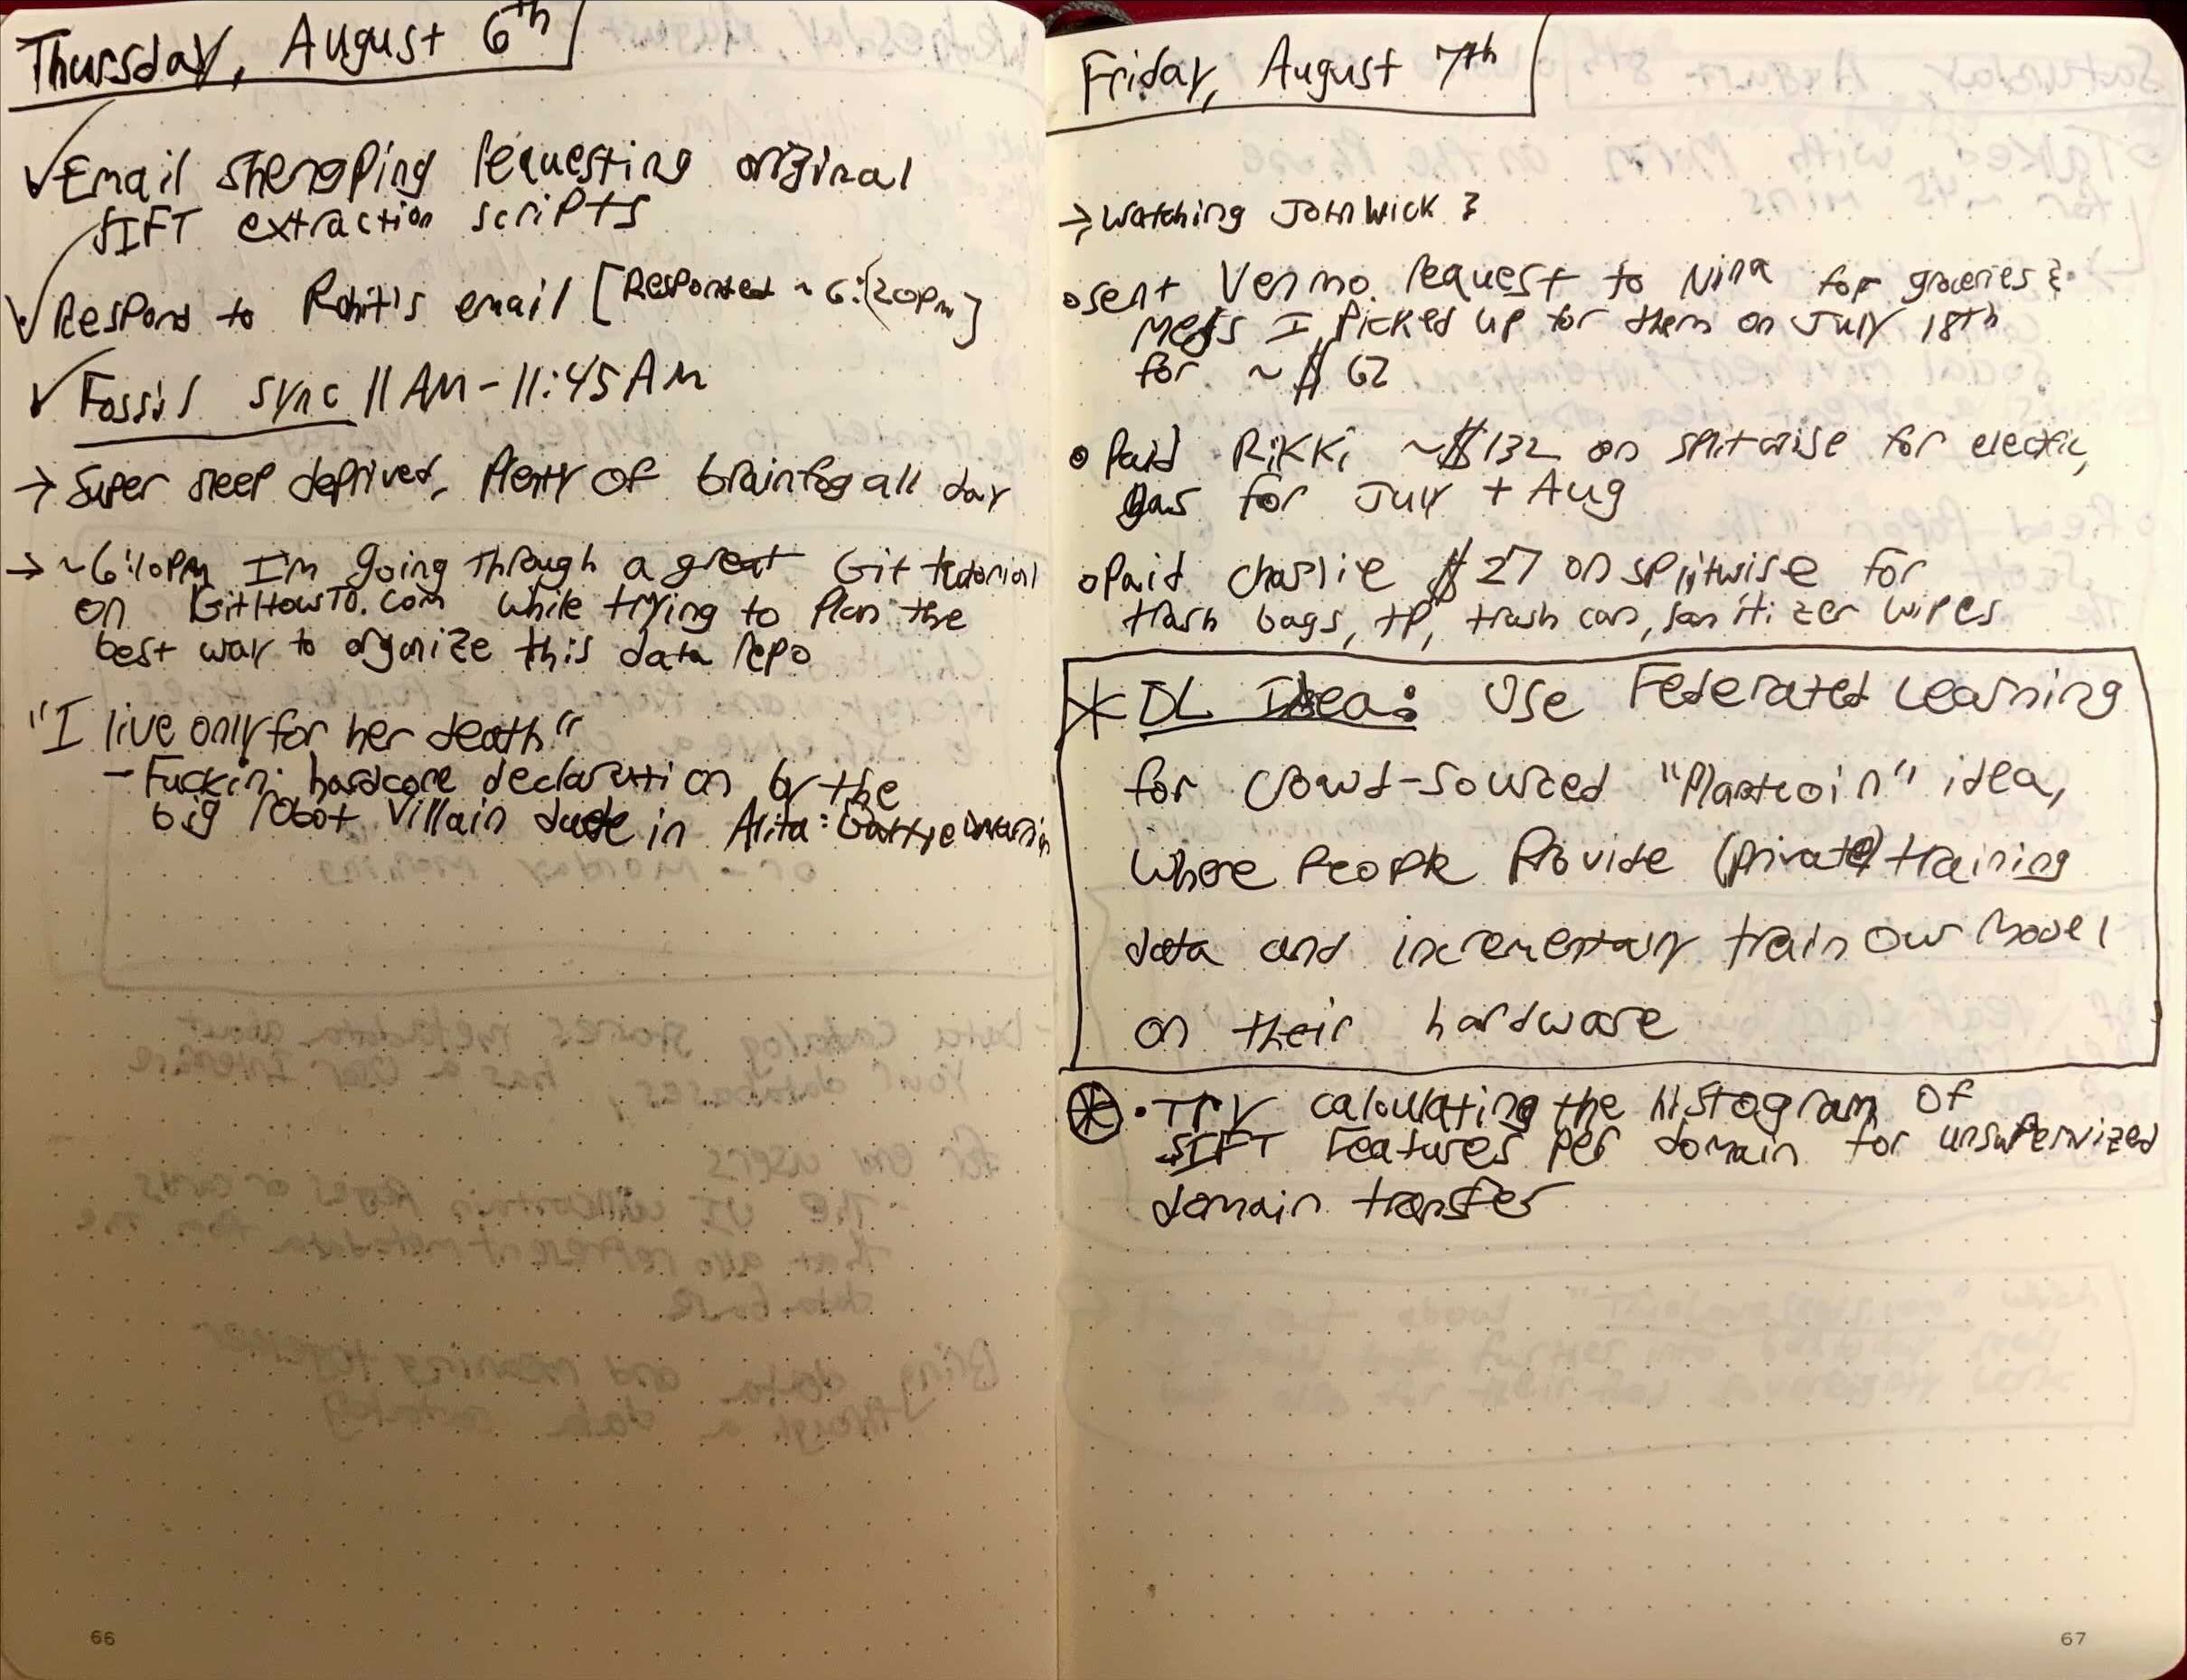 Thursday, August 6th
✓Email Shengping requesting original
SIFT extraction scripts
✓Respond to Rohit's email [Responded ~6:20pm]
✓Fossil sync 11 AM - 11:45 AM
→ Super sleep deprived, Plenty of brainfog all day
→ ~6:10PM I'm going through a great Git tutorial
on GitHowTo.com while trying to plan the
best way to organize this data repo
"I live only for her death"
- Fuckin' hardcore declaration by the
big robot villain dude in Alita: Battle
66
Friday, August 7th
→ Watching John Wick 3
o sent Venmo request to Nina for groceries &
meds I picked up for them on July 18th
for ~$62
o Paid Rikki ~$132 on splitwise for electric,
gas for July + Aug
o Paid Charlie $27 on splitwise for
trash bags, TP, trash can, sanitizer wipes
* DL Idea: Use Federated Learning
for Crowd-sourced "Plantcoin" idea,
where People Provide (private) training
data and incrementally train our model
on their hardware
⊛ • Try calculating the histogram of
SIFT Features per domain for unsupervized
domain transfer
67